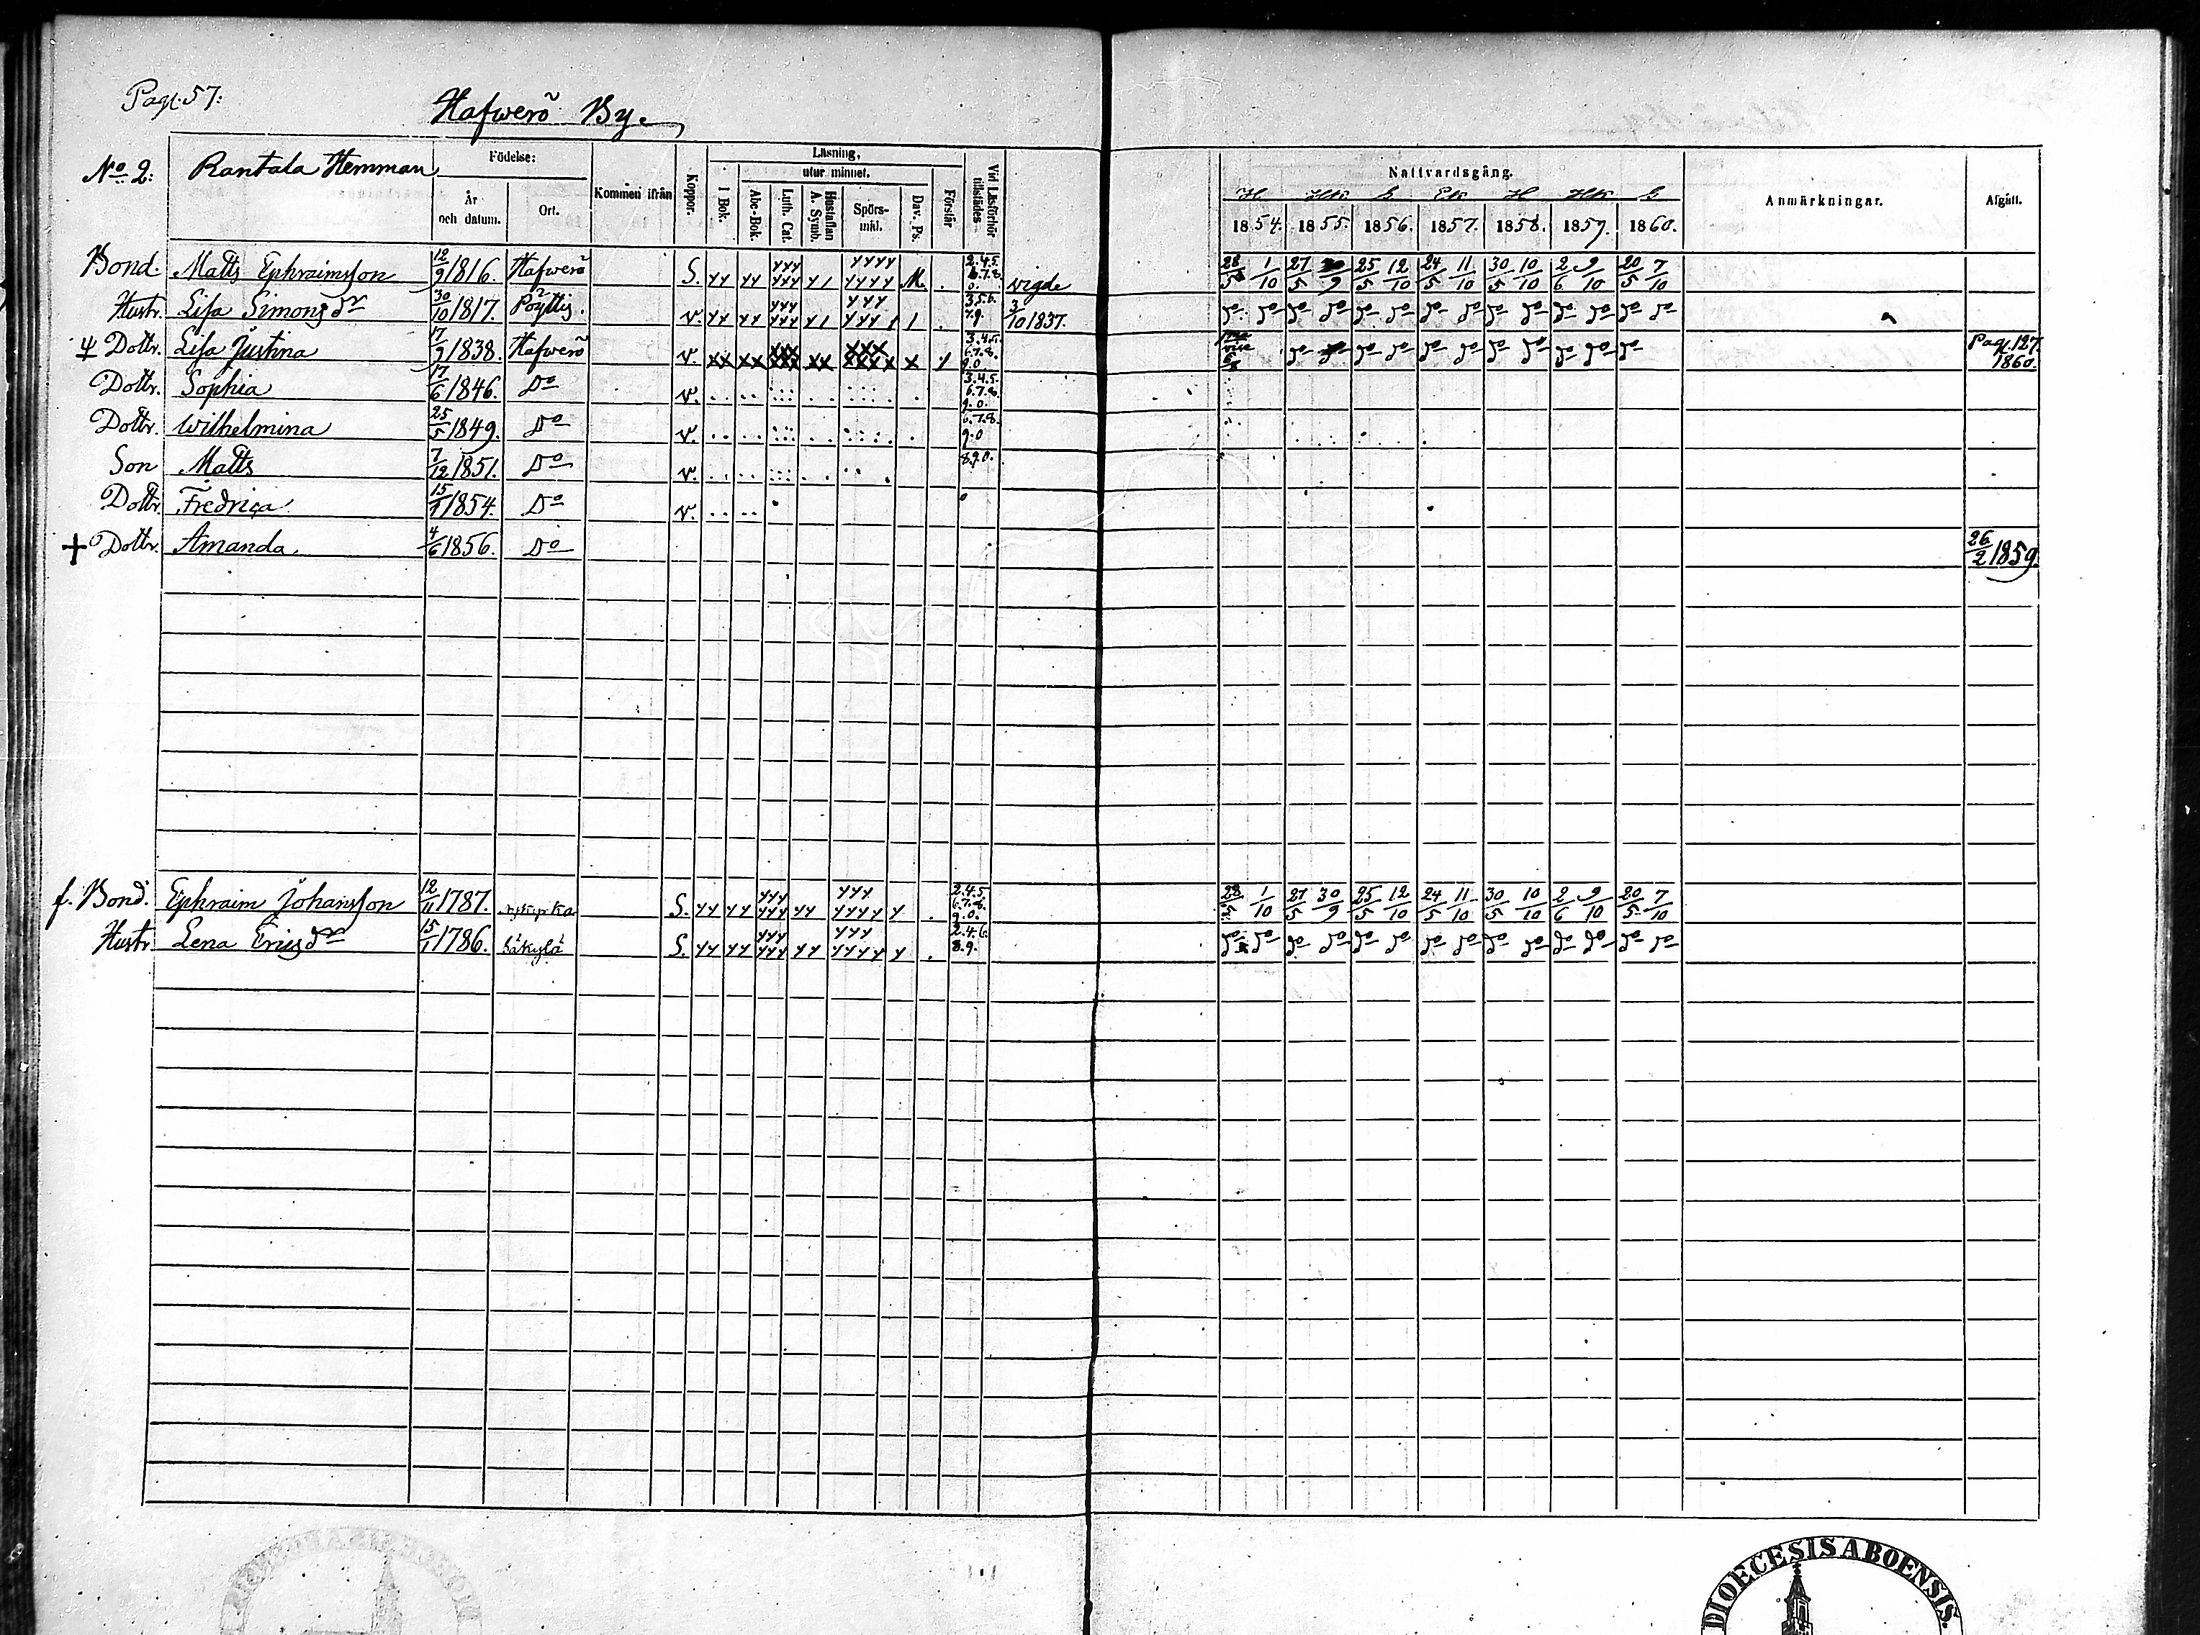 Pag. 57:
Hafwerö By.
No 2: Rantala Hemman
Födelse: År och datum. Ort. Kommen ifrån Koppor. Läsning, I Bok. utur minnet. Abc-Bok. Luth. Cat. Hustaflan A. Symb. Spörs-mkl. Dav. Ps. Förstår Vid Läsförhör tillstädes
Nattvardsgång. 1854. 1855. 1856. 1857. 1858. 1859. 1860. Anmärkningar. Afgått.
Bond. Matts Ephraimsson 12/9 1816. Hafwerö S. yy yy yyy yyy y1 yyyy yyyy M. . 2.4.5. 6.7.8. 0. vigde 28/5 1/10 27/5 30/9 25/5 12/10 24/5 11/10 30/5 10/10 2/6 9/10 20/5 7/10
Hustr. Lisa Simonsdr 30/10 1817. Pöyttis. v. yy yy yyy yyy y1 yyy yyy1 1 . 3.5.6. 7.9. 3/10 1837. do do do do do do do do do do do do do do
Dottr. Lisa Justina 17/9 1838. Hafwerö v. xx xx xxx xxx xx xxx xxxx x y 3.4.5. 6.7.8. 9.0. do do do do do do do do do do do do Pag. 127. 1860.
Dottr. Sophia 17/6 1846. Do v. 3.4.5. 6.7.8. 9.0.
Dottr. Wilhelmina 25/5 1849. Do v. 6.7.8. 9.0
Son Matts 7/12 1851. Do v. 8.9.0.
Dottr. Fredrica 15/1 1854. Do v. 0
+ Dottr. Amanda. 4/6 1856. Do 26/2 1859.
f. Bond. Ephraim Johansson 12/11 1787. S. yy yy yyy yyy yy yyy yyyy y . 2.4.5 6.7.8. 9.0. 28/5 1/10 27/5 30/9 25/5 12/10 24/5 11/10 30/5 10/10 2/6 9/10 20/5 7/10
Hustr. Lena Ericsdr 15/1 1786. Säkylä S. yy yy yyy yyy yy yyy yyyy y . 2.4.6. 8.9. do do do do do do do do do do do do do do
DIOECESIS ABOENSIS.